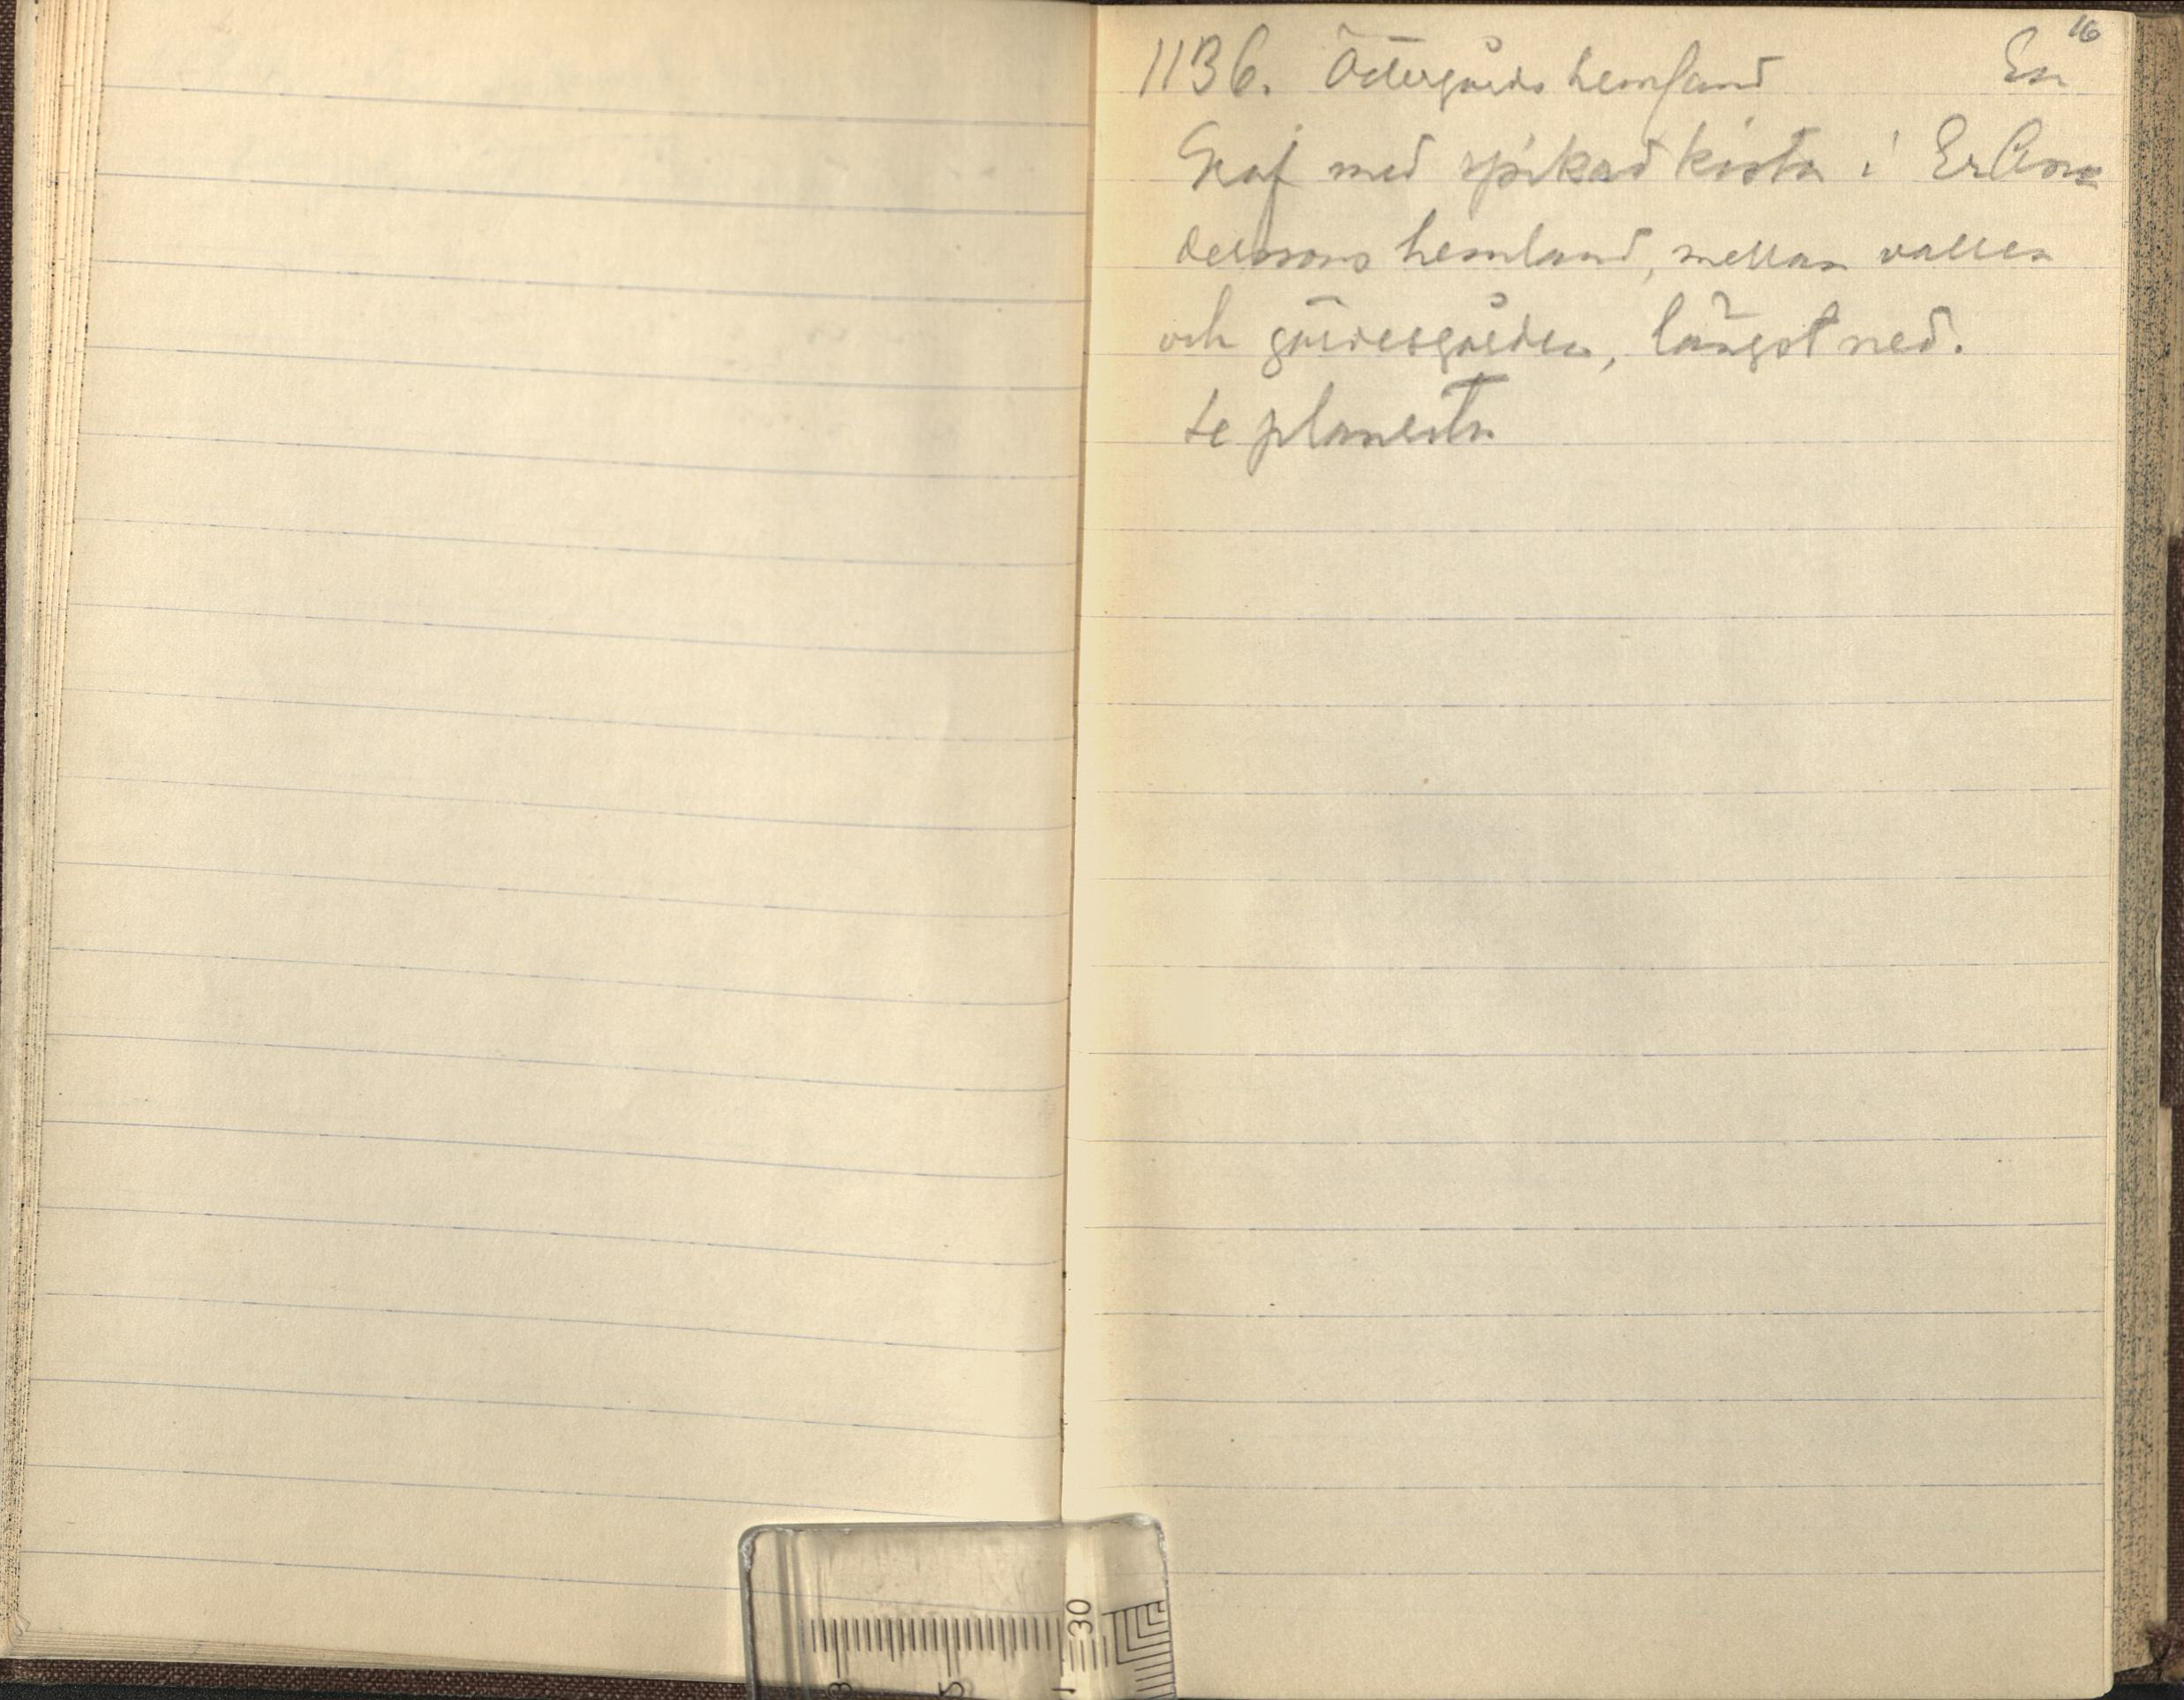 16
1136. Östergårds hemland En
Graf med spikad kista i Er Ans
derssons hemland, mellan vallen
och gärdesgården, längst ned.
se planerta
30